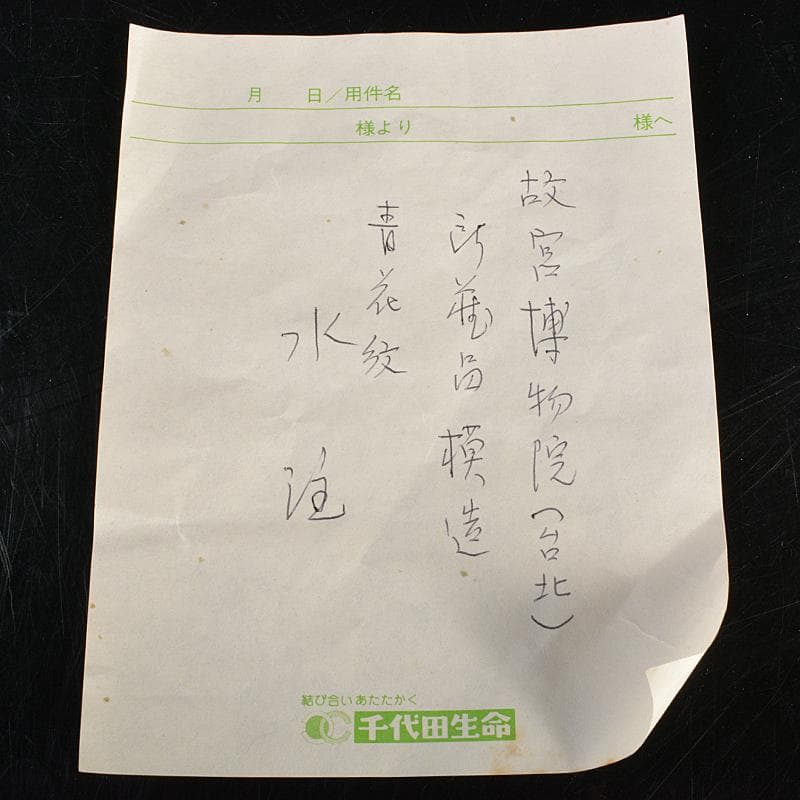 月　日／用件名
様より　様へ
故宮博物院(台北)
所蔵品模造
青花紋
水注
結び合いあたたかく
千代田生命